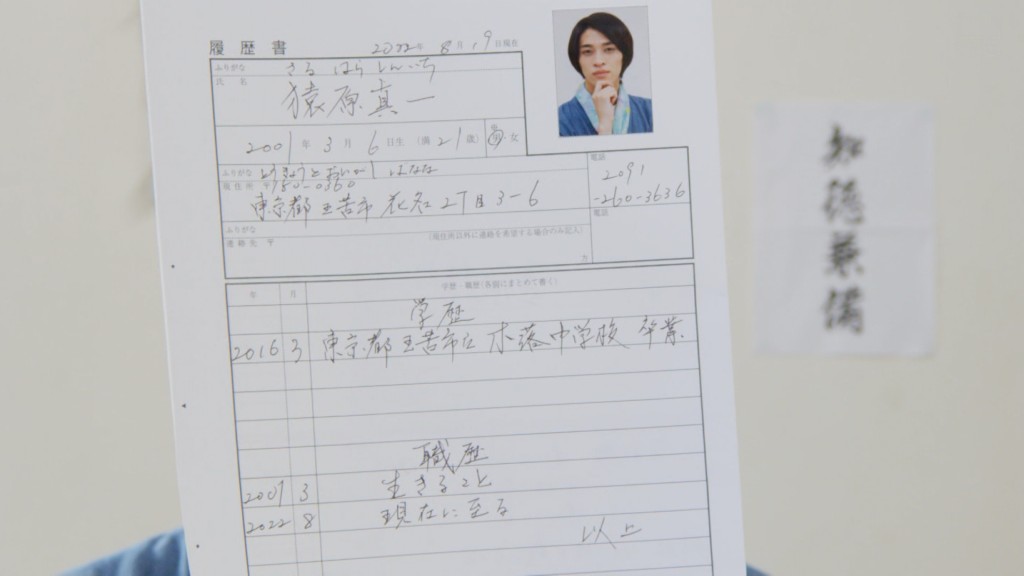 履歴書 2022年 8月 19日現在
ふりがな さる はら しんいち
氏 名 猿原真一
2001年 3月 6日生 (満 21歳) 男・女
ふりがな
現住所 〒180-0360
東京都王苦市 花名2丁目3-6
電話
2091
-260-3636
ふりがな
連絡先 〒 (現住所以外に連絡を希望する場合のみ記入)
方
電話
年 月 学歴・職歴(各別にまとめて書く)
学歴
2016 3 東京都王苦市立 木落中学校 卒業
職歴
2001 3 生きること
2022 8 現在に至る
以上
知徳兼備